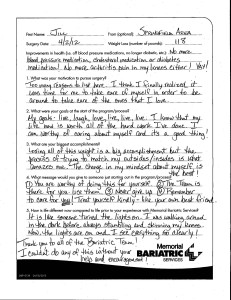 First Name: Jill From (optional) STANSFIELD ADDER
Surgery Date: 4/2/12 Weight Loss (number of pounds): 118
Improvements in health (i.e. off blood pressure medications, no longer diabetic, etc.): No more
blood pressure medication, cholesterol medication, or diabetes
medication! No more arthritis pain in my knees either! Yay!
1. What was your motivation to pursue surgery?
Too many reasons to list here. I think I finally realized, it
was time for me to take care of myself in order to be
around to take care of the ones that I love.
2. What were your goals at the start of the program/process?
My goals - live, laugh, love, live, live, live. I know that my
life now is worth all of the hard work I've done. I
am worthy of caring about myself and it's a good thing!
3. What are your biggest accomplishments?
Losing all of this weight is a big accomplishment but the
process of trying to match my outsides/insides is what
amazes me. The change in my mindset about myself is
the best!
4. What message would you give to someone just starting out in the program/process?
① You are worthy of doing this for yourself. ② The Team is
there for you. Use them. ③ Never give up. ④ Remember
to care for you! Treat yourself kindly - like your own best friend.
5. How is life different now compared to prior to your experience with Memorial Bariatric Services?
It is like someone turned the lights on. I was walking around
in the dark before always stumbling and skinning my knees.
Now the lights are on and I see everything so clearly!
Thank you to all of the Bariatric Team!
I couldn't do any of this without your
help and encouragement!
Memorial
BARIATRIC
SERVICES